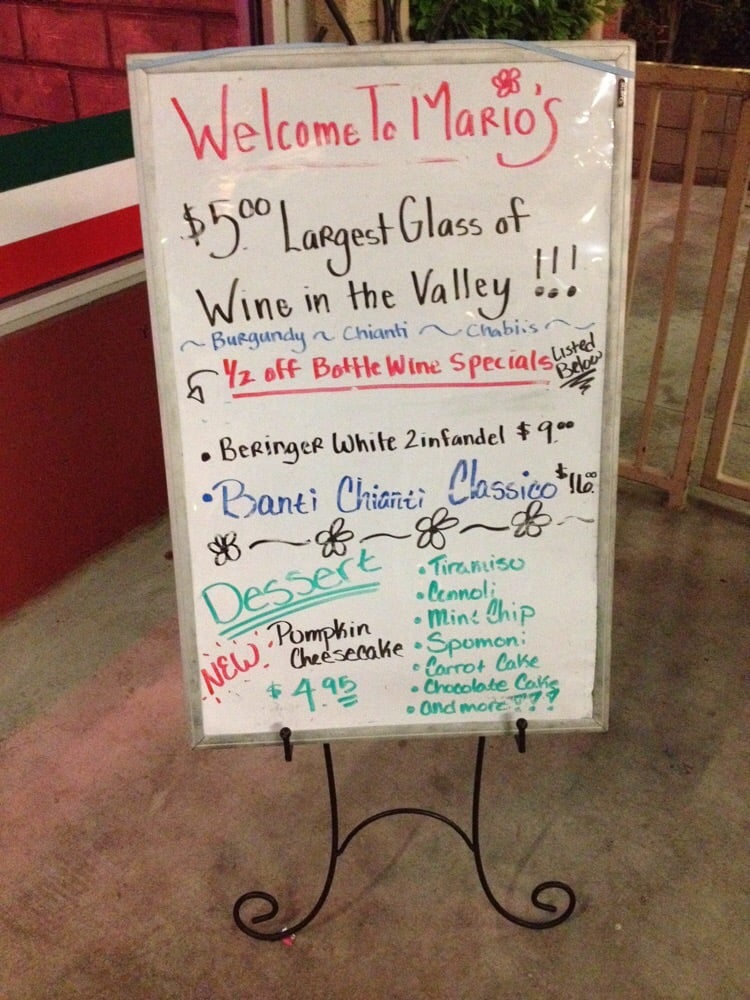 Welcome To Mario's
$5.00 Largest Glass of
Wine in the Valley !!!
~ Burgundy ~ Chianti ~ Chablis ~
1/2 off Bottle Wine Specials Listed Below
• Beringer White Zinfandel $9.00
• Banfi Chianti Classico $16.00
Dessert
NEW! Pumpkin
Cheesecake
$4.95
• Tiramisu
• Cannoli
• Mint Chip
• Spumoni
• Carrot Cake
• Chocolate Cake
• and more???